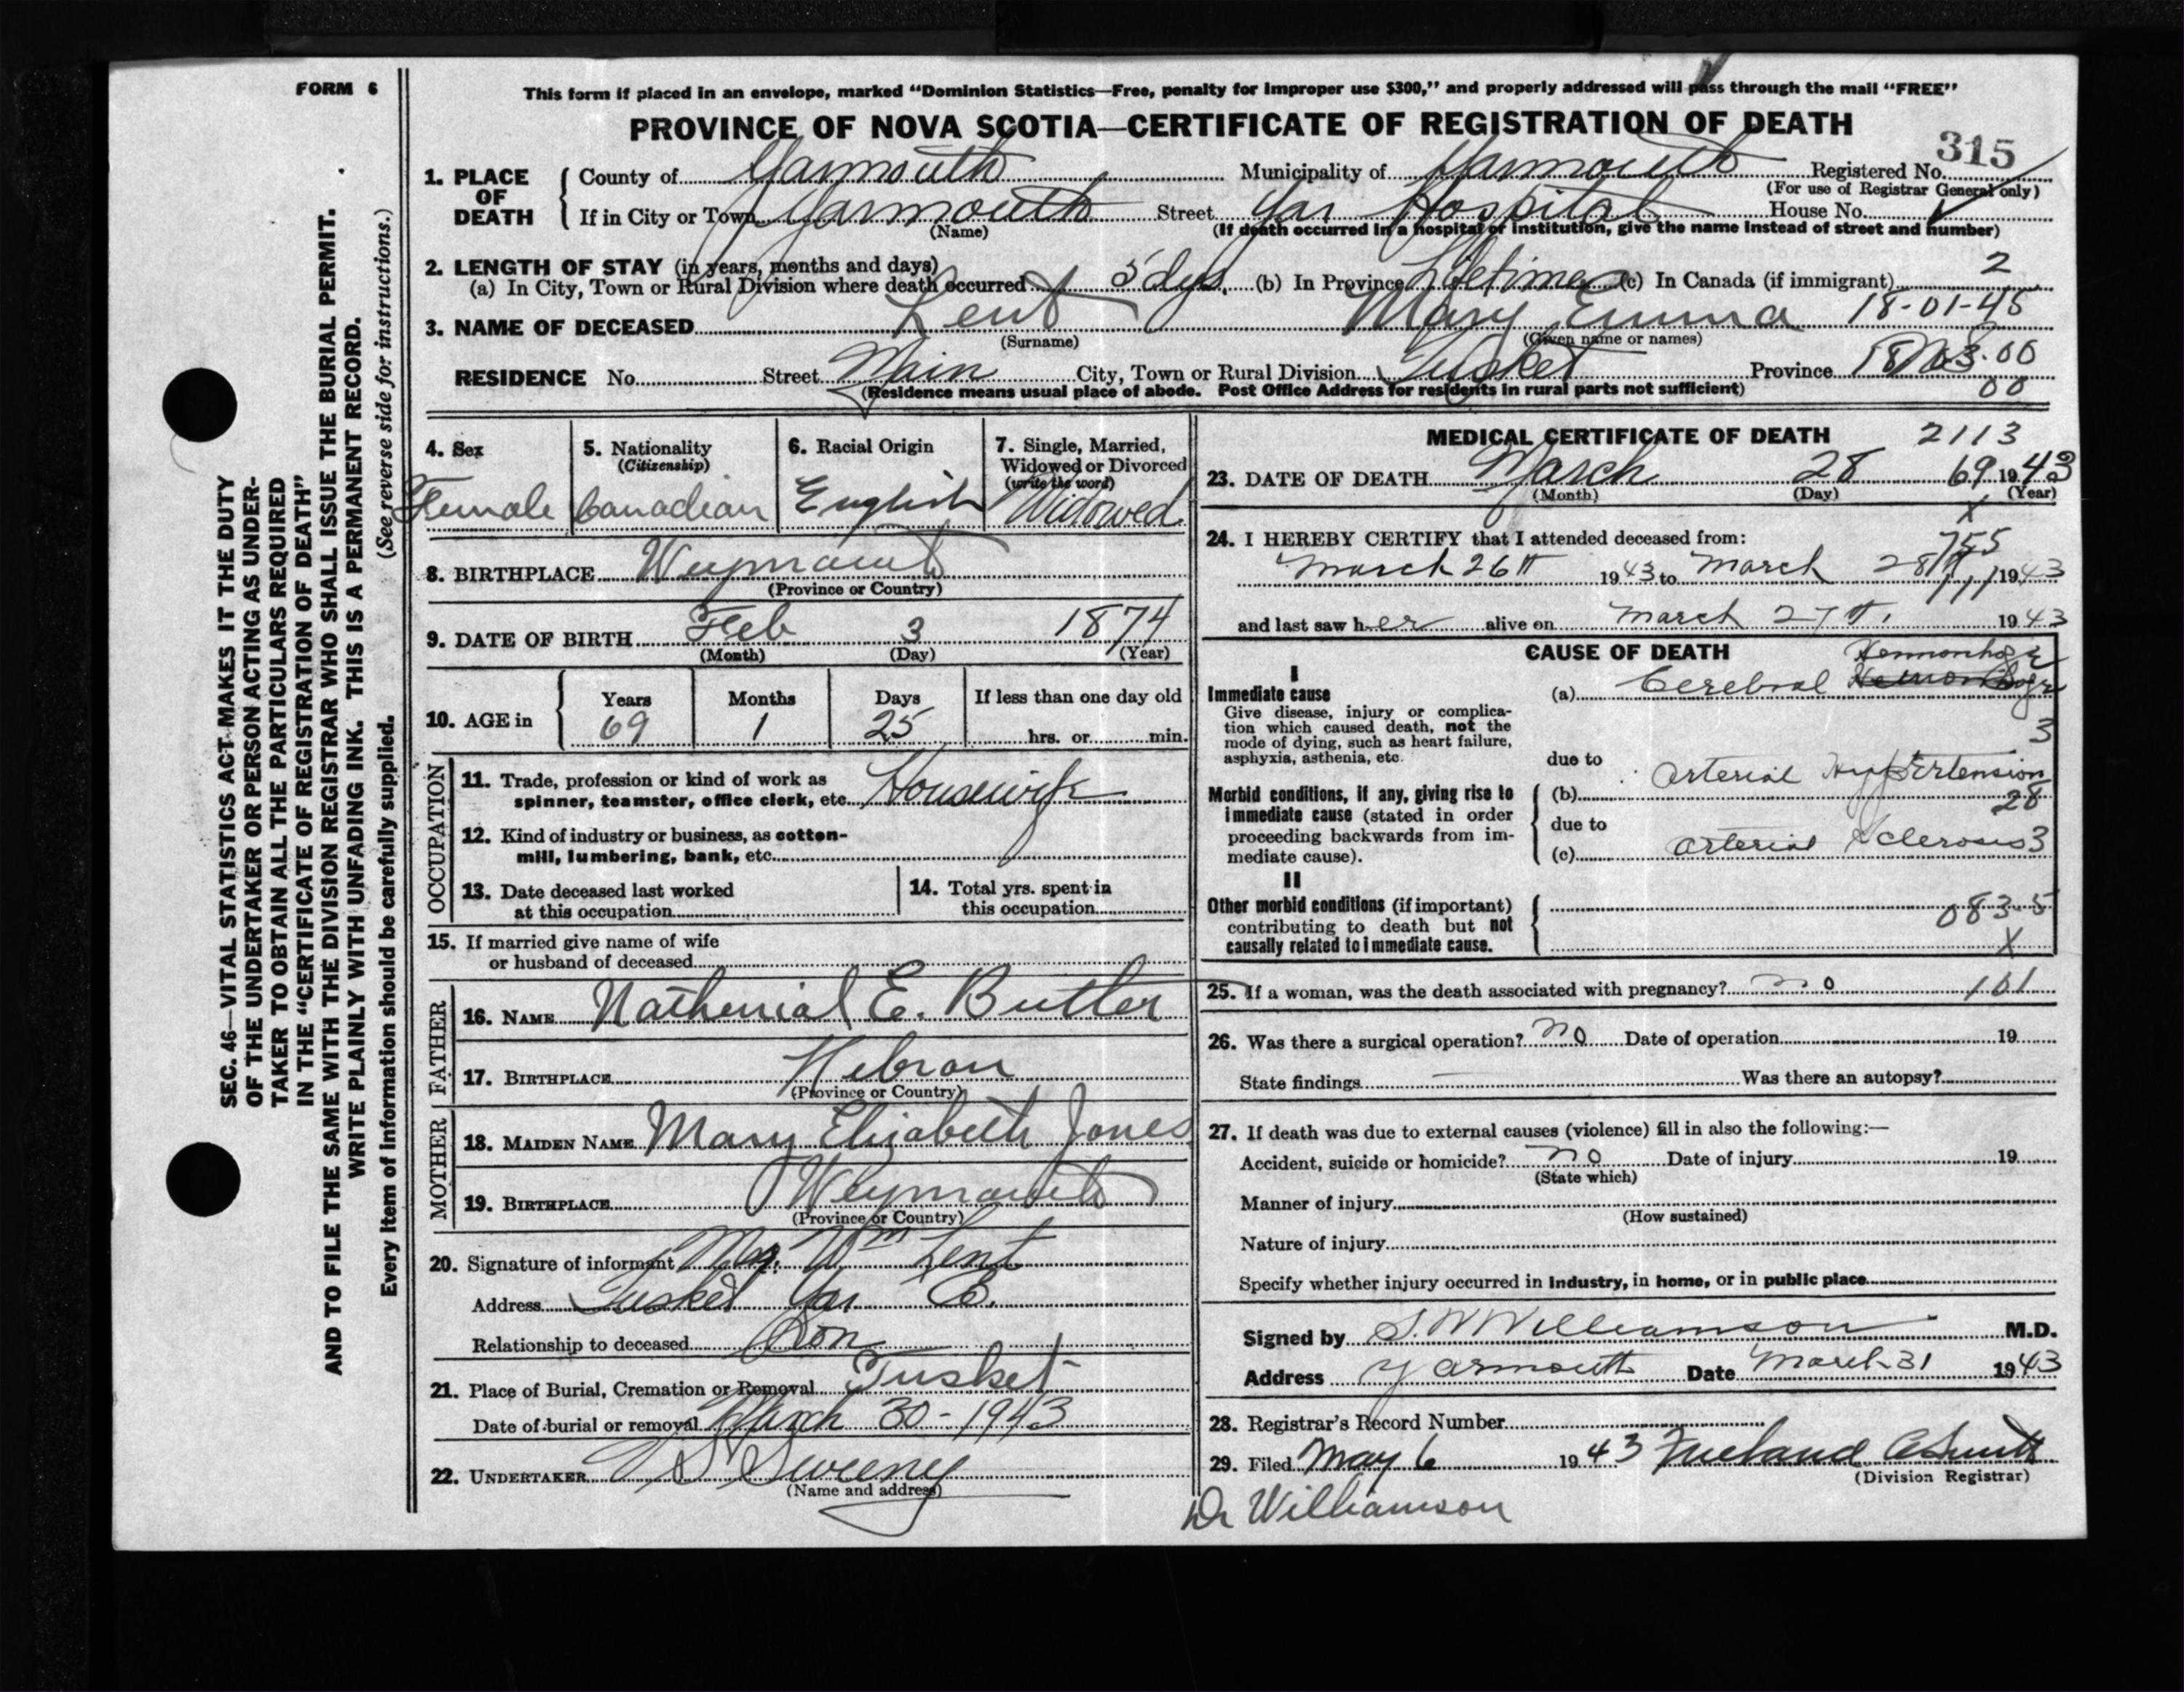 FORM 6
This form if placed in an envelope, marked "Dominion Statistics—Free, penalty for improper use $300," and properly addressed will pass through the mail "FREE"
PROVINCE OF NOVA SCOTIA—CERTIFICATE OF REGISTRATION OF DEATH
315
1. PLACE OF DEATH
County of Yarmouth Municipality of Yarmouth Registered No.
(For use of Registrar General only)
If in City or Town Yarmouth Street Yar Hospital House No.
(Name) (If death occurred in a hospital or institution, give the name instead of street and number)
2. LENGTH OF STAY (in years, months and days)
(a) In City, Town or Rural Division where death occurred 5 dys. (b) In Province Lifetime (c) In Canada (if immigrant) 2
3. NAME OF DECEASED Lent Mary Emma 18-01-45
(Surname) (Given name or names)
RESIDENCE No. Street Main City, Town or Rural Division Tusket Province
(Residence means usual place of abode. Post Office Address for residents in rural parts not sufficient) 00
SEC. 46—VITAL STATISTICS ACT MAKES IT THE DUTY
OF THE UNDERTAKER OR PERSON ACTING AS UNDER-
TAKER TO OBTAIN ALL THE PARTICULARS REQUIRED
IN THE "CERTIFICATE OF REGISTRATION OF DEATH"
AND TO FILE THE SAME WITH THE DIVISION REGISTRAR WHO SHALL ISSUE THE BURIAL PERMIT.
WRITE PLAINLY WITH UNFADING INK. THIS IS A PERMANENT RECORD.
Every item of information should be carefully supplied. (See reverse side for instructions.)
4. Sex
Female
5. Nationality
(Citizenship)
Canadian
6. Racial Origin
English
7. Single, Married,
Widowed or Divorced
(write the word)
Widowed
8. BIRTHPLACE Weymouth
(Province or Country)
9. DATE OF BIRTH Feb 3 1874
(Month) (Day) (Year)
10. AGE in
Years Months Days If less than one day old
69 1 25 hrs. or min.
OCCUPATION
11. Trade, profession or kind of work as
spinner, teamster, office clerk, etc. Housewife
12. Kind of industry or business, as cotton-
mill, lumbering, bank, etc.
13. Date deceased last worked
at this occupation
14. Total yrs. spent in
this occupation
15. If married give name of wife
or husband of deceased
FATHER
16. NAME Nathenial E. Butler
17. BIRTHPLACE Hebron
(Province or Country)
MOTHER
18. MAIDEN NAME Mary Elizabeth Jones
19. BIRTHPLACE Weymouth
(Province or Country)
20. Signature of informant Wm Lent
Address Tusket Yar Co.
Relationship to deceased Son
21. Place of Burial, Cremation or Removal Tusket
Date of burial or removal March 30-1943
22. UNDERTAKER Sweeny
(Name and address)
MEDICAL CERTIFICATE OF DEATH 2113
23. DATE OF DEATH March 28 69 1943
(Month) (Day) (Year)
X
24. I HEREBY CERTIFY that I attended deceased from:
755
March 26th 1943 to March 28 1943
and last saw her alive on March 27th, 1943
CAUSE OF DEATH
I
Immediate cause
Give disease, injury or complica-
tion which caused death, not the
mode of dying, such as heart failure,
asphyxia, asthenia, etc.
Hemmorhage
(a) Cerebral
3
due to
Arterial Hypertension
(b)
28
due to
(c) Arterial Sclerosis 3
Morbid conditions, if any, giving rise to
immediate cause (stated in order
proceeding backwards from im-
mediate cause).
II
Other morbid conditions (if important)
contributing to death but not
causally related to immediate cause.
083-5
X
25. If a woman, was the death associated with pregnancy? no 101
26. Was there a surgical operation? no Date of operation 19
State findings — Was there an autopsy?
27. If death was due to external causes (violence) fill in also the following:—
Accident, suicide or homicide? no Date of injury 19
(State which)
Manner of injury
(How sustained)
Nature of injury
Specify whether injury occurred in industry, in home, or in public place
Signed by S.W Williamson M.D.
Address Yarmouth Date March 31 1943
28. Registrar's Record Number
29. Filed May 6 1943 Smith
(Division Registrar)
Dr Williamson